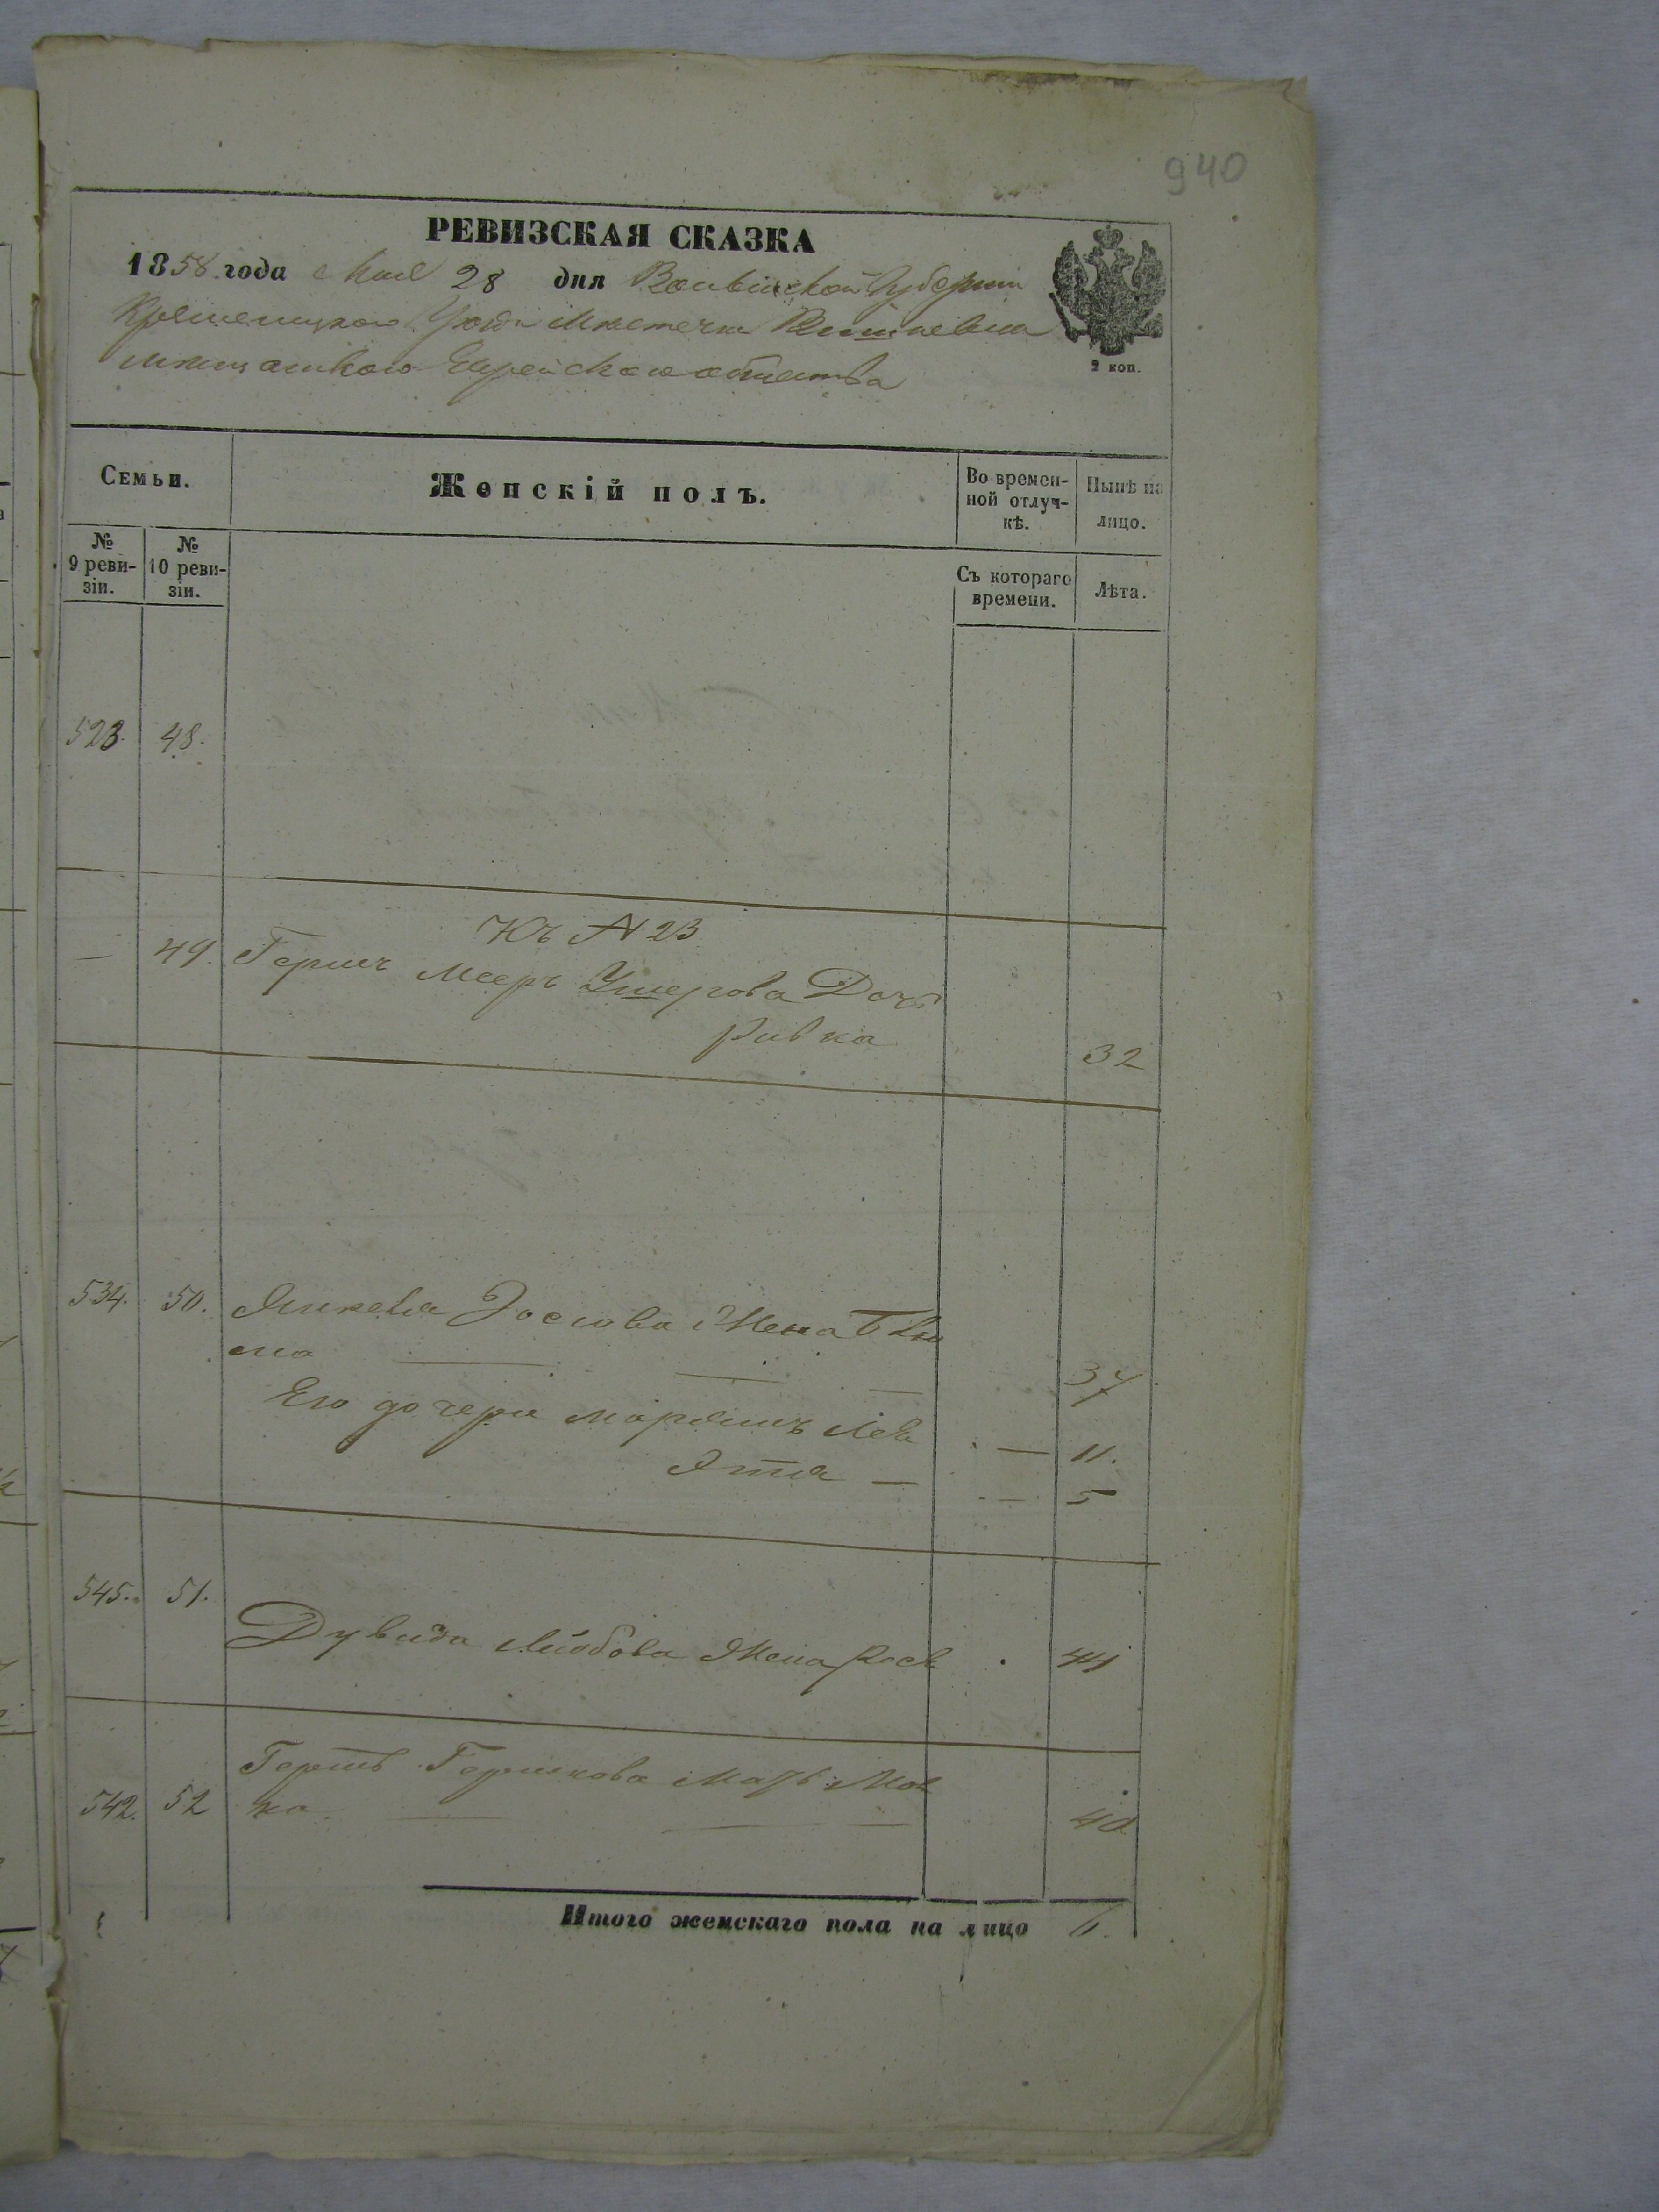 940
РЕВИЗСКАЯ СКАЗКА
1858 года Мая 28 дня Волынской Губернии
Кременецкого Уезда Местечка Вишневца
мещанского Еврейского общества
2 коп.
Семьи.
Женскій полъ.
Во времен-
ной отлуч-
кѣ.
Нынѣ на
лицо.
№
9 реви-
зіи.
№
10 реви-
зіи.
Съ котораго
времени.
Лѣта.
523. 48.
Къ № 23
— 49. Герша Меера Ушерова Дочь
Ривка 32
534. 50. Янкеля Жена
37
Его дочери 11.
— 5
545. 51.
Дувида Лейбова Жена 41
Герша Гершкова Мать
542. 52 ка. 40
Итого женскаго пола на лицо 6.